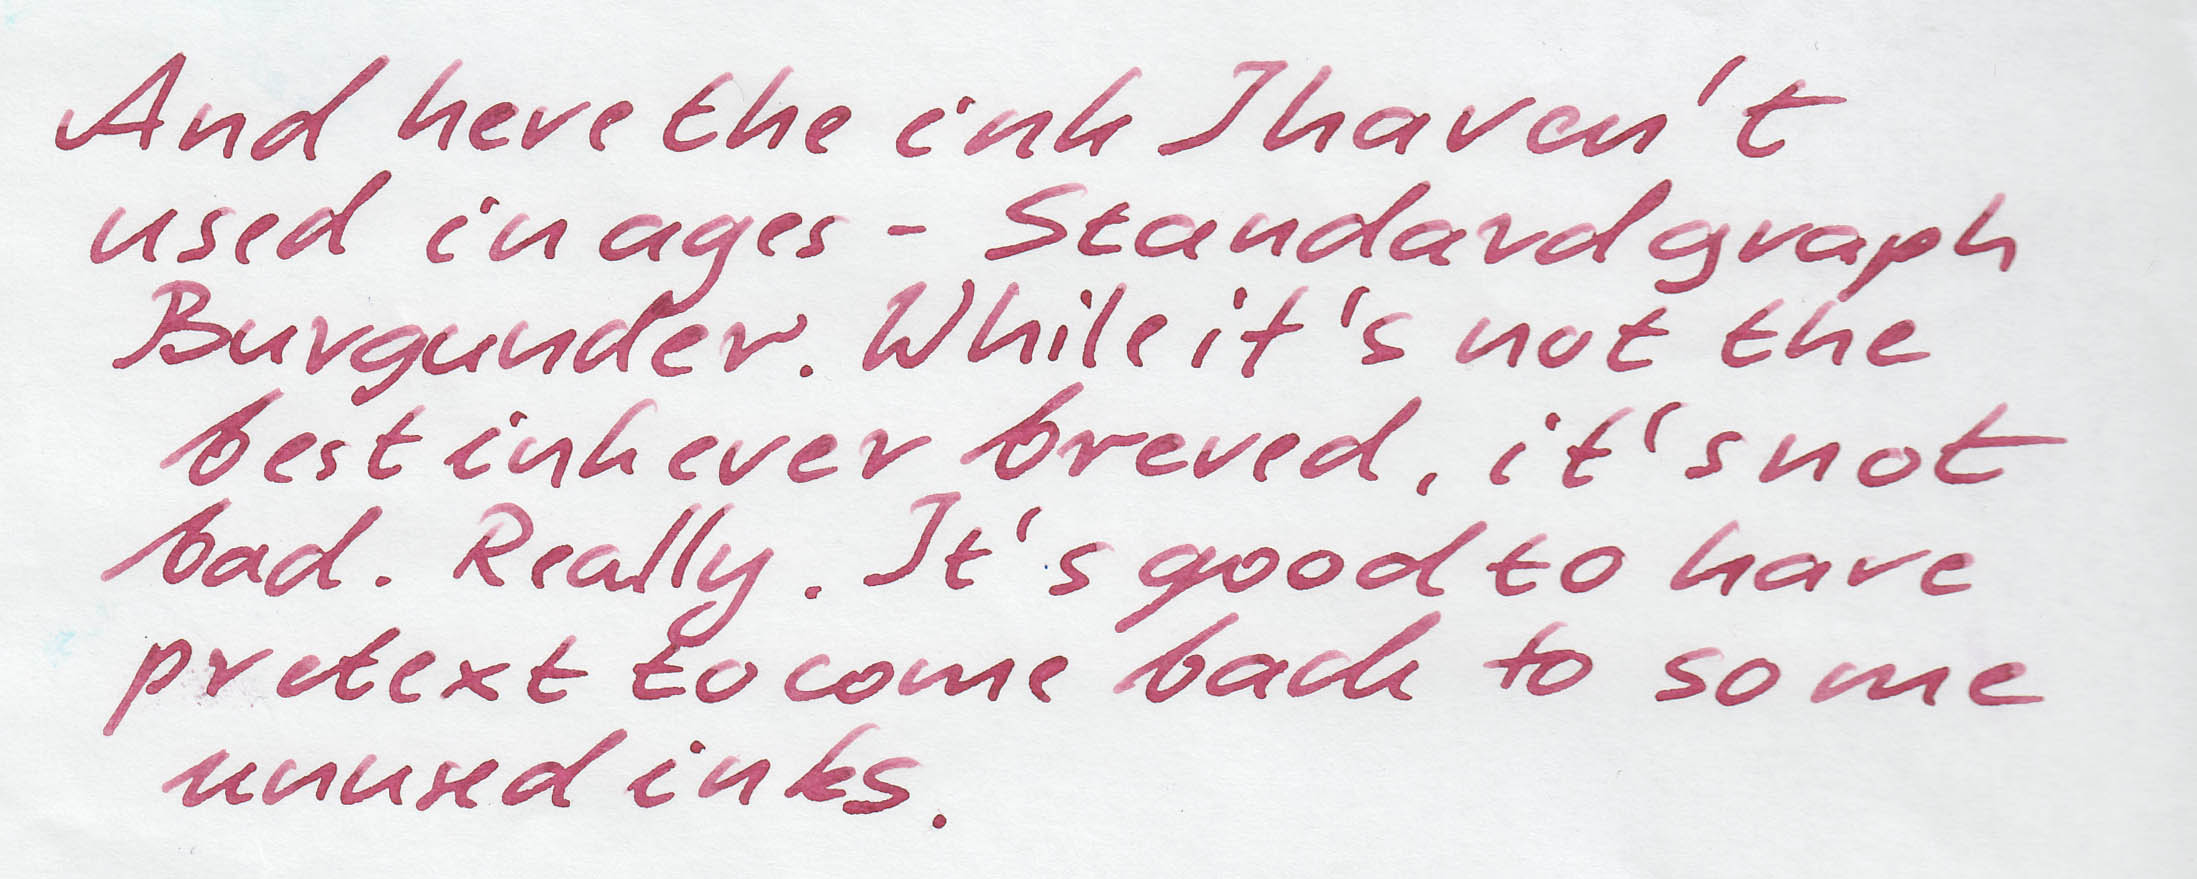 And here the ink I haven't
used in ages - Standardgraph
Burgunder. While it's not the
best ink ever breved, it's not
bad. Really. It's good to have
pretext to come back to some
unused inks.